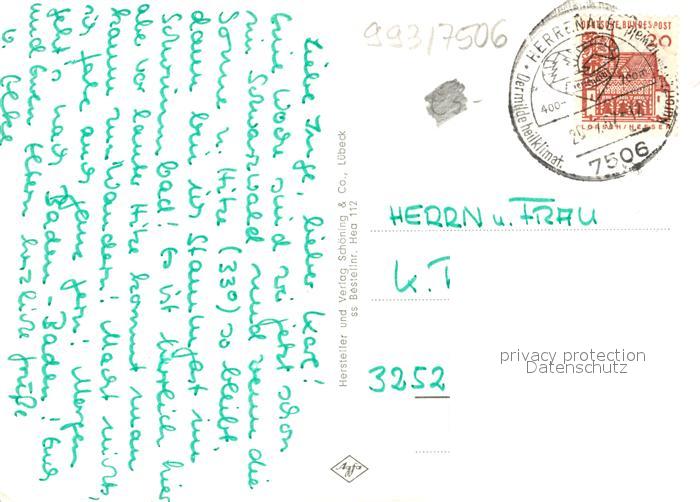 Liebe Inge, lieber Karl!
Eine Woche sind wir jetzt schon
im Schwarzwald und wenn die
Sonne u. Hitze (33°) so bleibt,
dann bin ich Stammgast im
Schwimmbad! Es ist herrlich hier
aber vor lauter Hitze kommt man
kaum zum Wandern! Macht nichts,
ich faule auch gerne gern! Morgen
geht's nach Baden-Baden! Euch
und Euren Eltern herzliche Grüße
Hersteller und Verlag Schöning & Co., Lübeck
ss Bestellnr. Hea 112
993/7506
DEUTSCHE BUNDESPOST
LORSCH/HESSEN
HERRENALB
Der milde heilklimat.
400-700m
7506
HERRN u. FRAU
K. T
3252
privacy protection
Datenschutz
Agfa